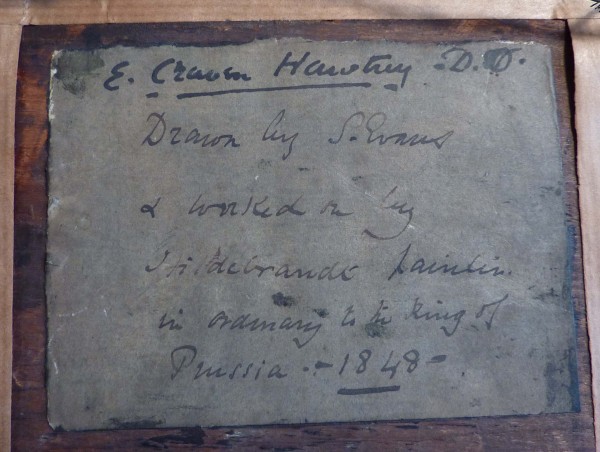 E. Craven Hawtrey - D. D.
Drawn by S. Evans
& worked on by
Hildebrandt painter
in ordinary to the King of
Prussia - 1848 -